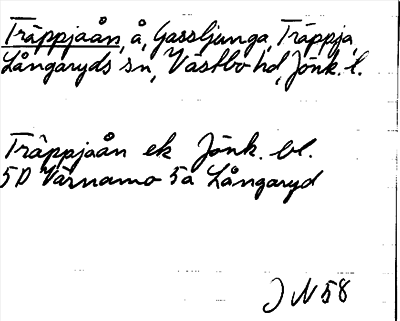 Träppjaån, å, Gassljunga, Träppja,
Långaryds sn, Västbo hd, Jönk. l.
Träppjaån ek Jönk. bl.
5D Värnamo 5a Långaryd
J N 58